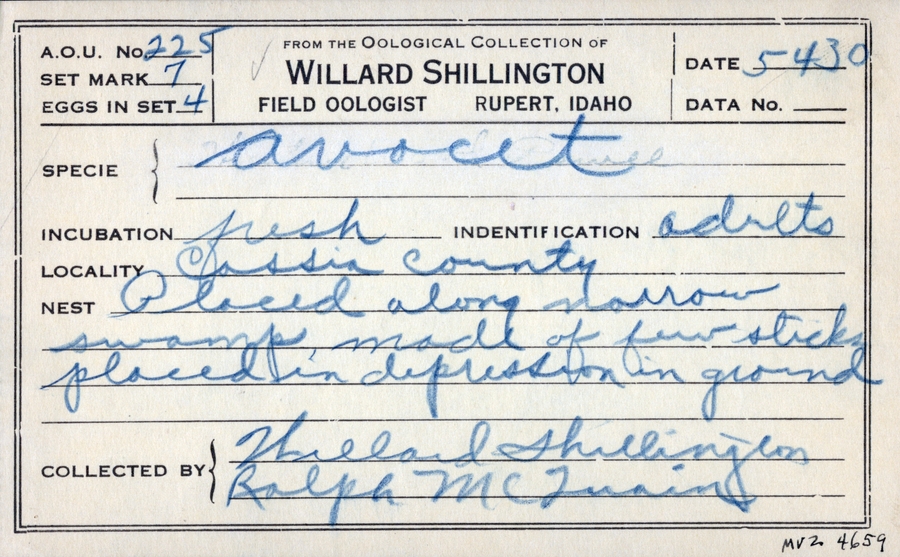 A.O.U. No. 225
SET MARK 7
EGGS IN SET 4
FROM THE OOLOGICAL COLLECTION OF
WILLARD SHILLINGTON
FIELD OOLOGIST RUPERT, IDAHO
DATE 5 4 30
DATA No.
SPECIE avocet
INCUBATION fresh INDENTIFICATION adults
LOCALITY Cassia county
NEST Placed along narrow
swamp, made of few sticks
placed in depression in ground
COLLECTED BY Willard Shillington
Ralph McTwain
MVZ 4659